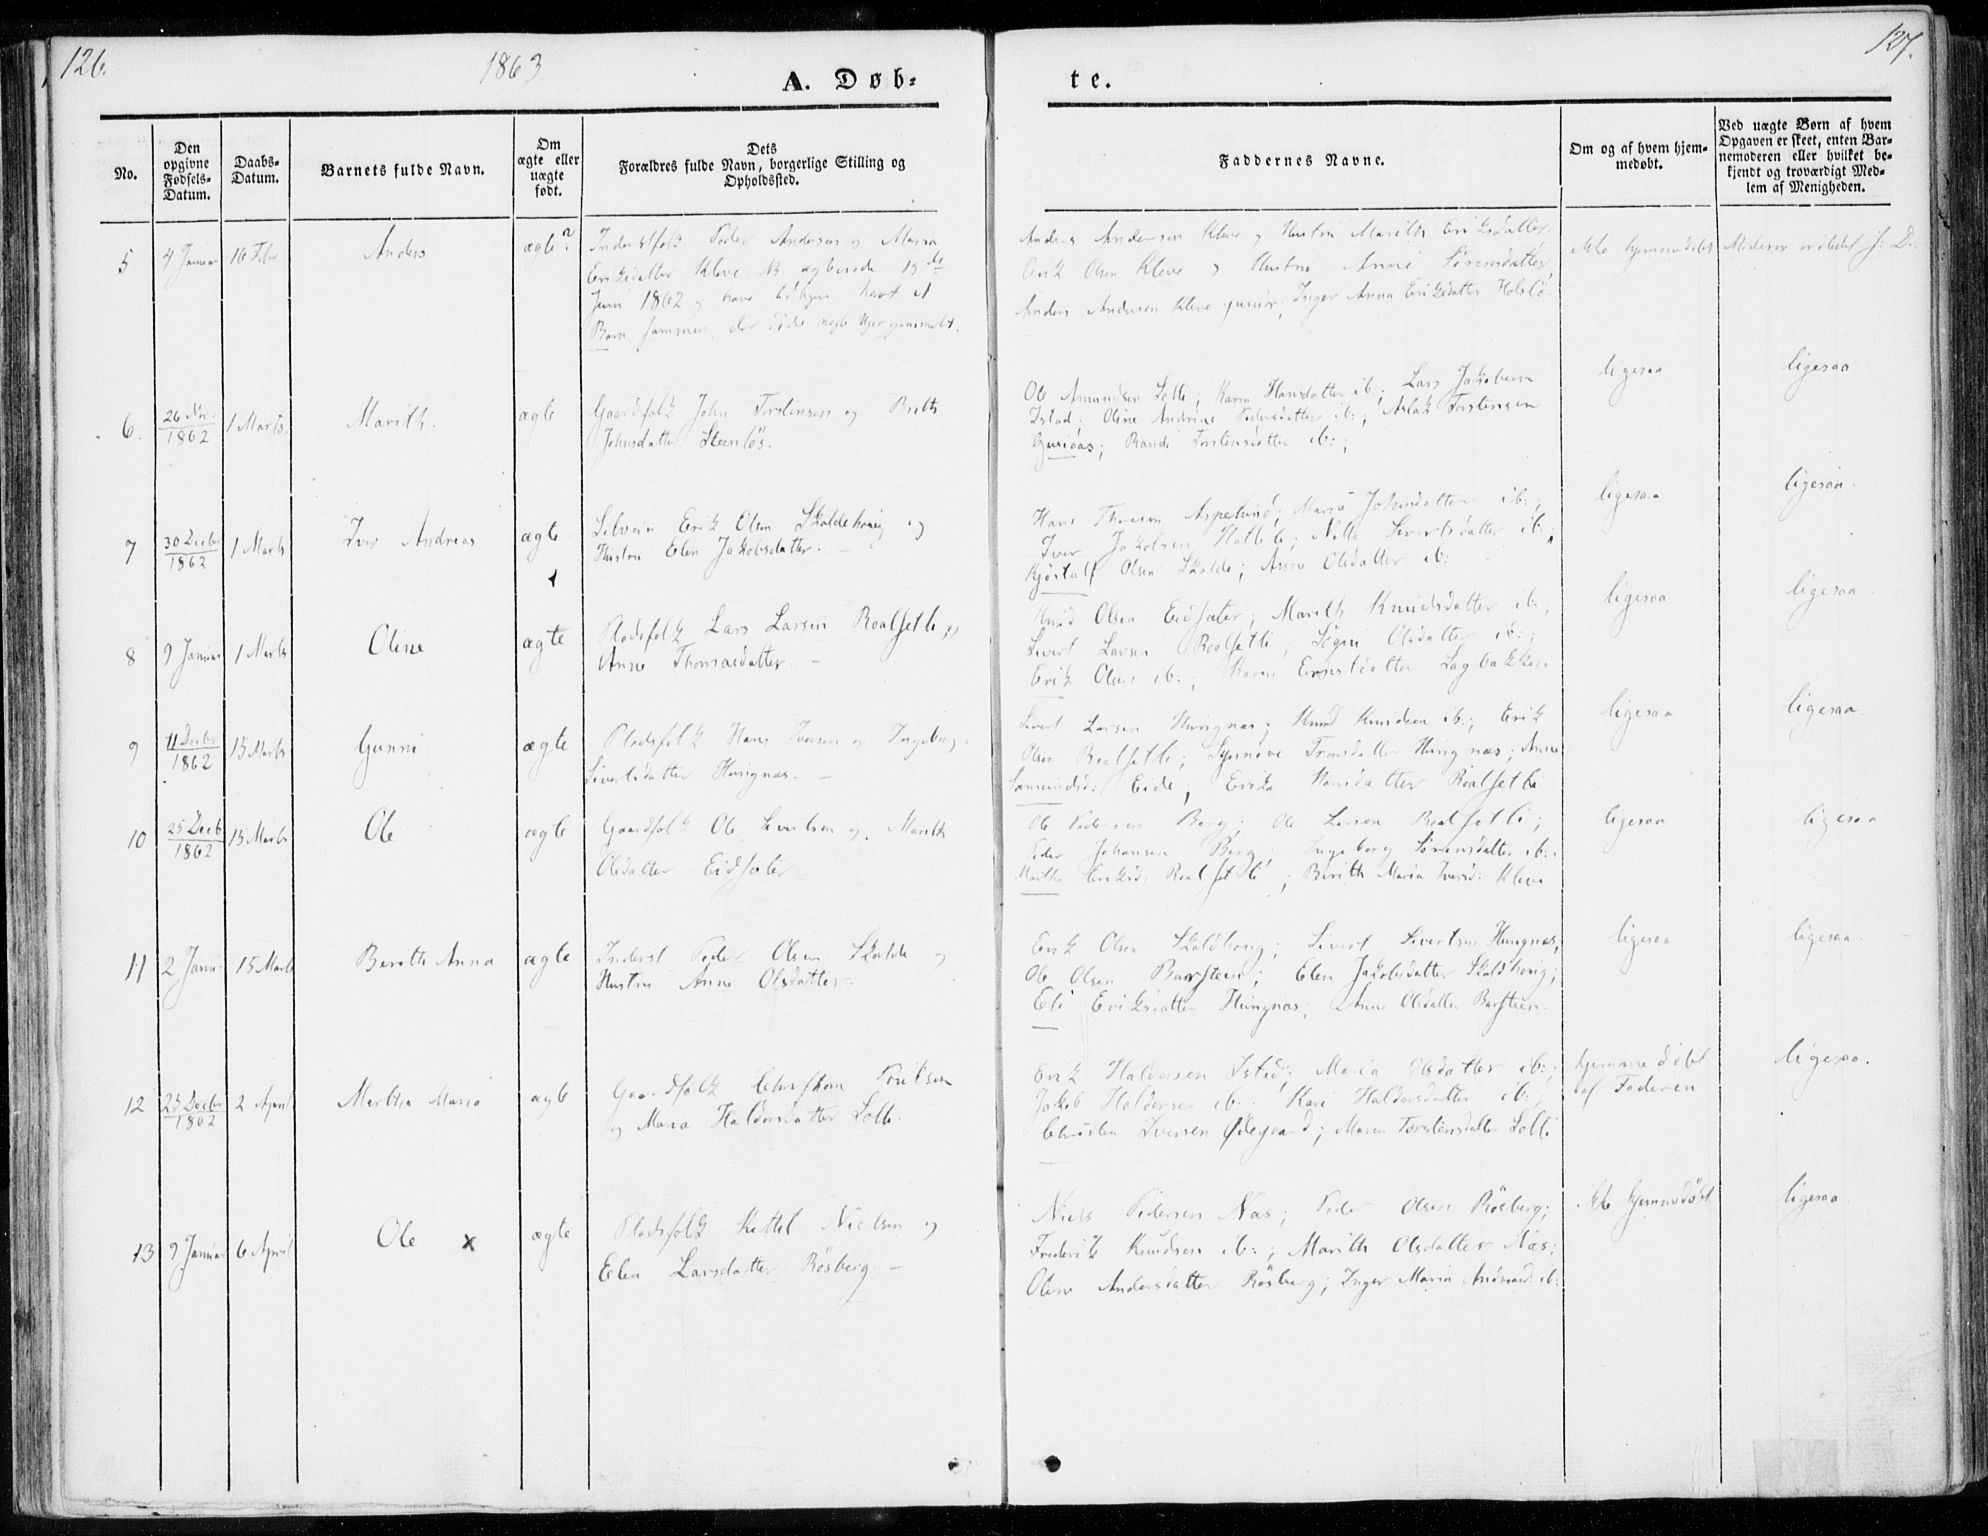 126.
1863
A. Døb-
te.
127.
No.
Den
opgivne
Fødsels-
Datum.
Daabs-
Datum.
Barnets fulde Navn.
Om
ægte eller
uægte
født.
Dets
Forældres fulde Navn, borgerlige Stilling og
Opholdssted.
Faddernes Navne.
Om og af hvem hjem-
medøbt.
Ved uægte Børn af hvem
Opgaven er skeet, enten Bar-
nemoderen eller hvilket be-
kjendt og troværdigt Med-
lem af Menigheden.
5
4 Januar
16 Febr
Anders
ægte?
Inderstfolk Peder Andersen og Maria
Eriksdatter Kleve
Juni 1862 og have havt et
Barn sammen, der
Anders Andersen Kleve og Hustru Marith Eriksdatter
Erik Olsen Kleve og Hustru Anne Sörensdatter
Anders Andersen Kleve junior; Inger Anna Eriksdatter
ikke hjemmedöbt
6.
26 Nov.
1862
1 Marts.
Marith.
ægte
Gaardfolk John Torstensen og Brith
Johnsdatter Steenlös.
Ole Amundsen Lolli; Karen Hansdatter ib:; Lars Jakobsen
Istad; Oline Andrine Pedersdatter ib:; Aslak Torstensen
Randi Torstensdatter ib:;
ligesaa
ligesaa
7
30 Decbr
1862
1 Marts
Iver Andreas
ægte
Erik Olsen Skaldehoug og
Hustru Elen Jakobsdatter. –
Hans Aspelund; Maria Johnsdatter ib:;
Iver Jakobsen Sivertsdatter ib:;
Olsen Skalde; Anne Olsdatter ib:
ligesaa
ligesaa.
8
9 Januar
1 Marts
Oline
ægte
Pladsfolk Lars Larsen Roalsetli og
Anne Thomasdatter. –
Knud Olsen Eidsæter; Marith Knudsdatter ib:;
Sivert Larsen Roalsetli; Olsdatter ib:;
Erik Olsen ib:; Karen Ernstdatter Sagbakken
ligesaa
ligesaa.
9
11 Decbr
1862
15 Marts
Gunni
ægte
Pladsfolk Hans Iversen og Ingeborg
Sivertsdatter Hungnæs. –
Sivert Larsen Hungnæs; Knud Knudsen ib:; Erik
Olsen Roalsetli; Synnøve Hungnæs; Anne
Eide; Erika Hansdatter Roalsetli
ligesaa
ligesaa.
10
25 Decb
1862
15 Marts
Ole
ægte
Gaardfolk Ole Sivertsen og Marith
Olsdatter Eidsæter
Ole Pedersen Berg; Ole Larsen Roalsetli;
Peder Johansen Berg; Ingeborg Sörensdatter ib:.
Martha Eriksd: Roalsetli; Berith Maria Iversd: Kleve
ligesaa
ligesaa
11
2 Janu:
15 Marts
Berith Anna
ægte
Inderst Peder Olsen Skalde og
Hustru Anne Olsdatter.
Erik Olsen Skaldhoug; Sivert Sivertsen Hungnæs;
Ole Olsen Barsteen; Elen Jakobsdatter Skaldhoug;
Eli Eriksdatter Hungnæs; Anne Olsdatter Barsteen.
ligesaa
ligesaa.
12
23 Decbr
1862
2 April
Martha Maria
ægte
Gaardfolk Christian
og Maria Haldorsdatter Lolli.
Erik Haldorsen Istad; Maria Olsdatter ib:;
Jakob Haldorsen ib:. Kari Haldorsdatter ib:;
Christen Iversen Ødegaard; Maren Torstensdatter Lolli
hjemmedöbt
af Faderen
ligesaa.
13
9 Januar
6 April
Ole x
ægte
Pladsfolk Kettel Nielsen og
Elen Larsdatter Rösberg. –
Niels Pedersen Næs; Peder Olsen Rösberg;
Frederik Knudsen ib:; Marith Olsdatter Næs;
Oline Andersdatter Rösberg; Inger Maria Andreasd: ib:
ikke hjemmedöbt
ligesaa